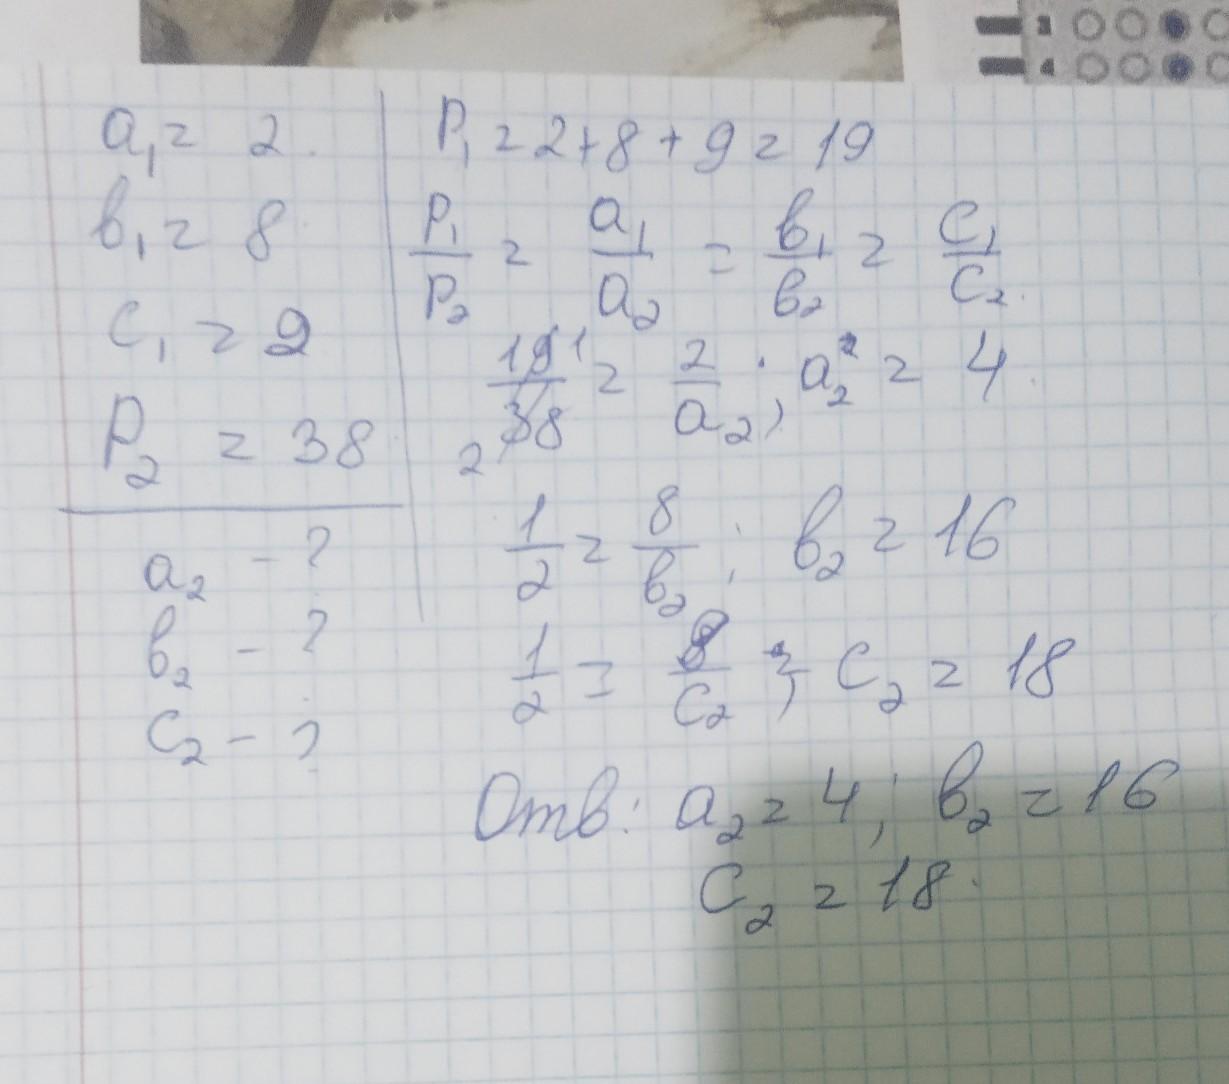 a₁ = 2.
b₁ = 8
c₁ = 9
P₂ = 38
a₂ - ?
b₂ - ?
c₂ - ?
P₁ = 2 + 8 + 9 = 19
P₁/P₂ = a₁/a₂ = b₁/b₂ = c₁/c₂.
19 1/2 38 = 2/a₂; a₂ = 4.
1/2 = 8/b₂; b₂ = 16
1/2 = 9/c₂; c₂ = 18
Отв: a₂ = 4; b₂ = 16
c₂ = 18.